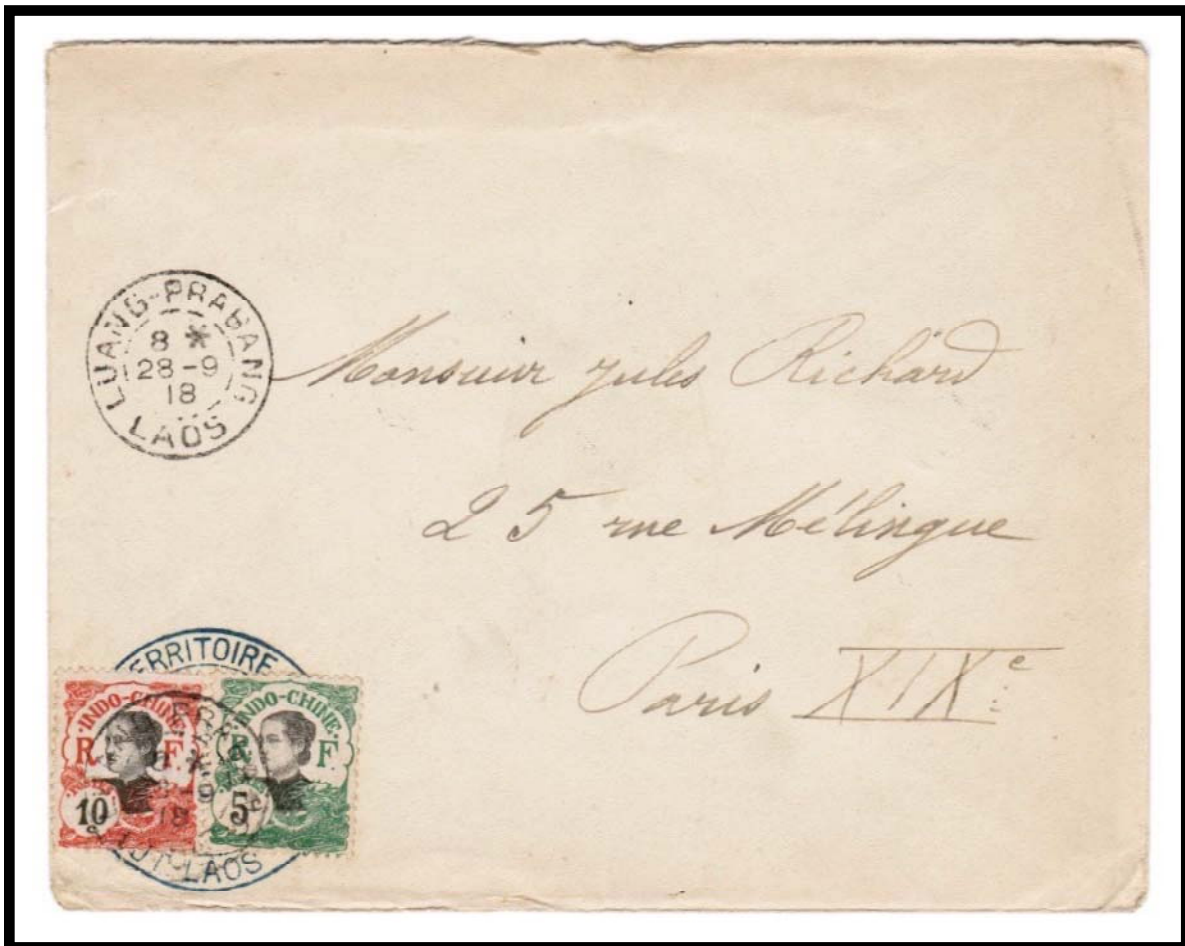 LUANG-PRABANG
8 *
28-9
18
LAOS
Monsieur Jules Richard
25 rue Mélingue
Paris XIXe
TERRITOIRE
INDO-CHINE
R F
10
INDO-CHINE
R F
5
18
LAOS